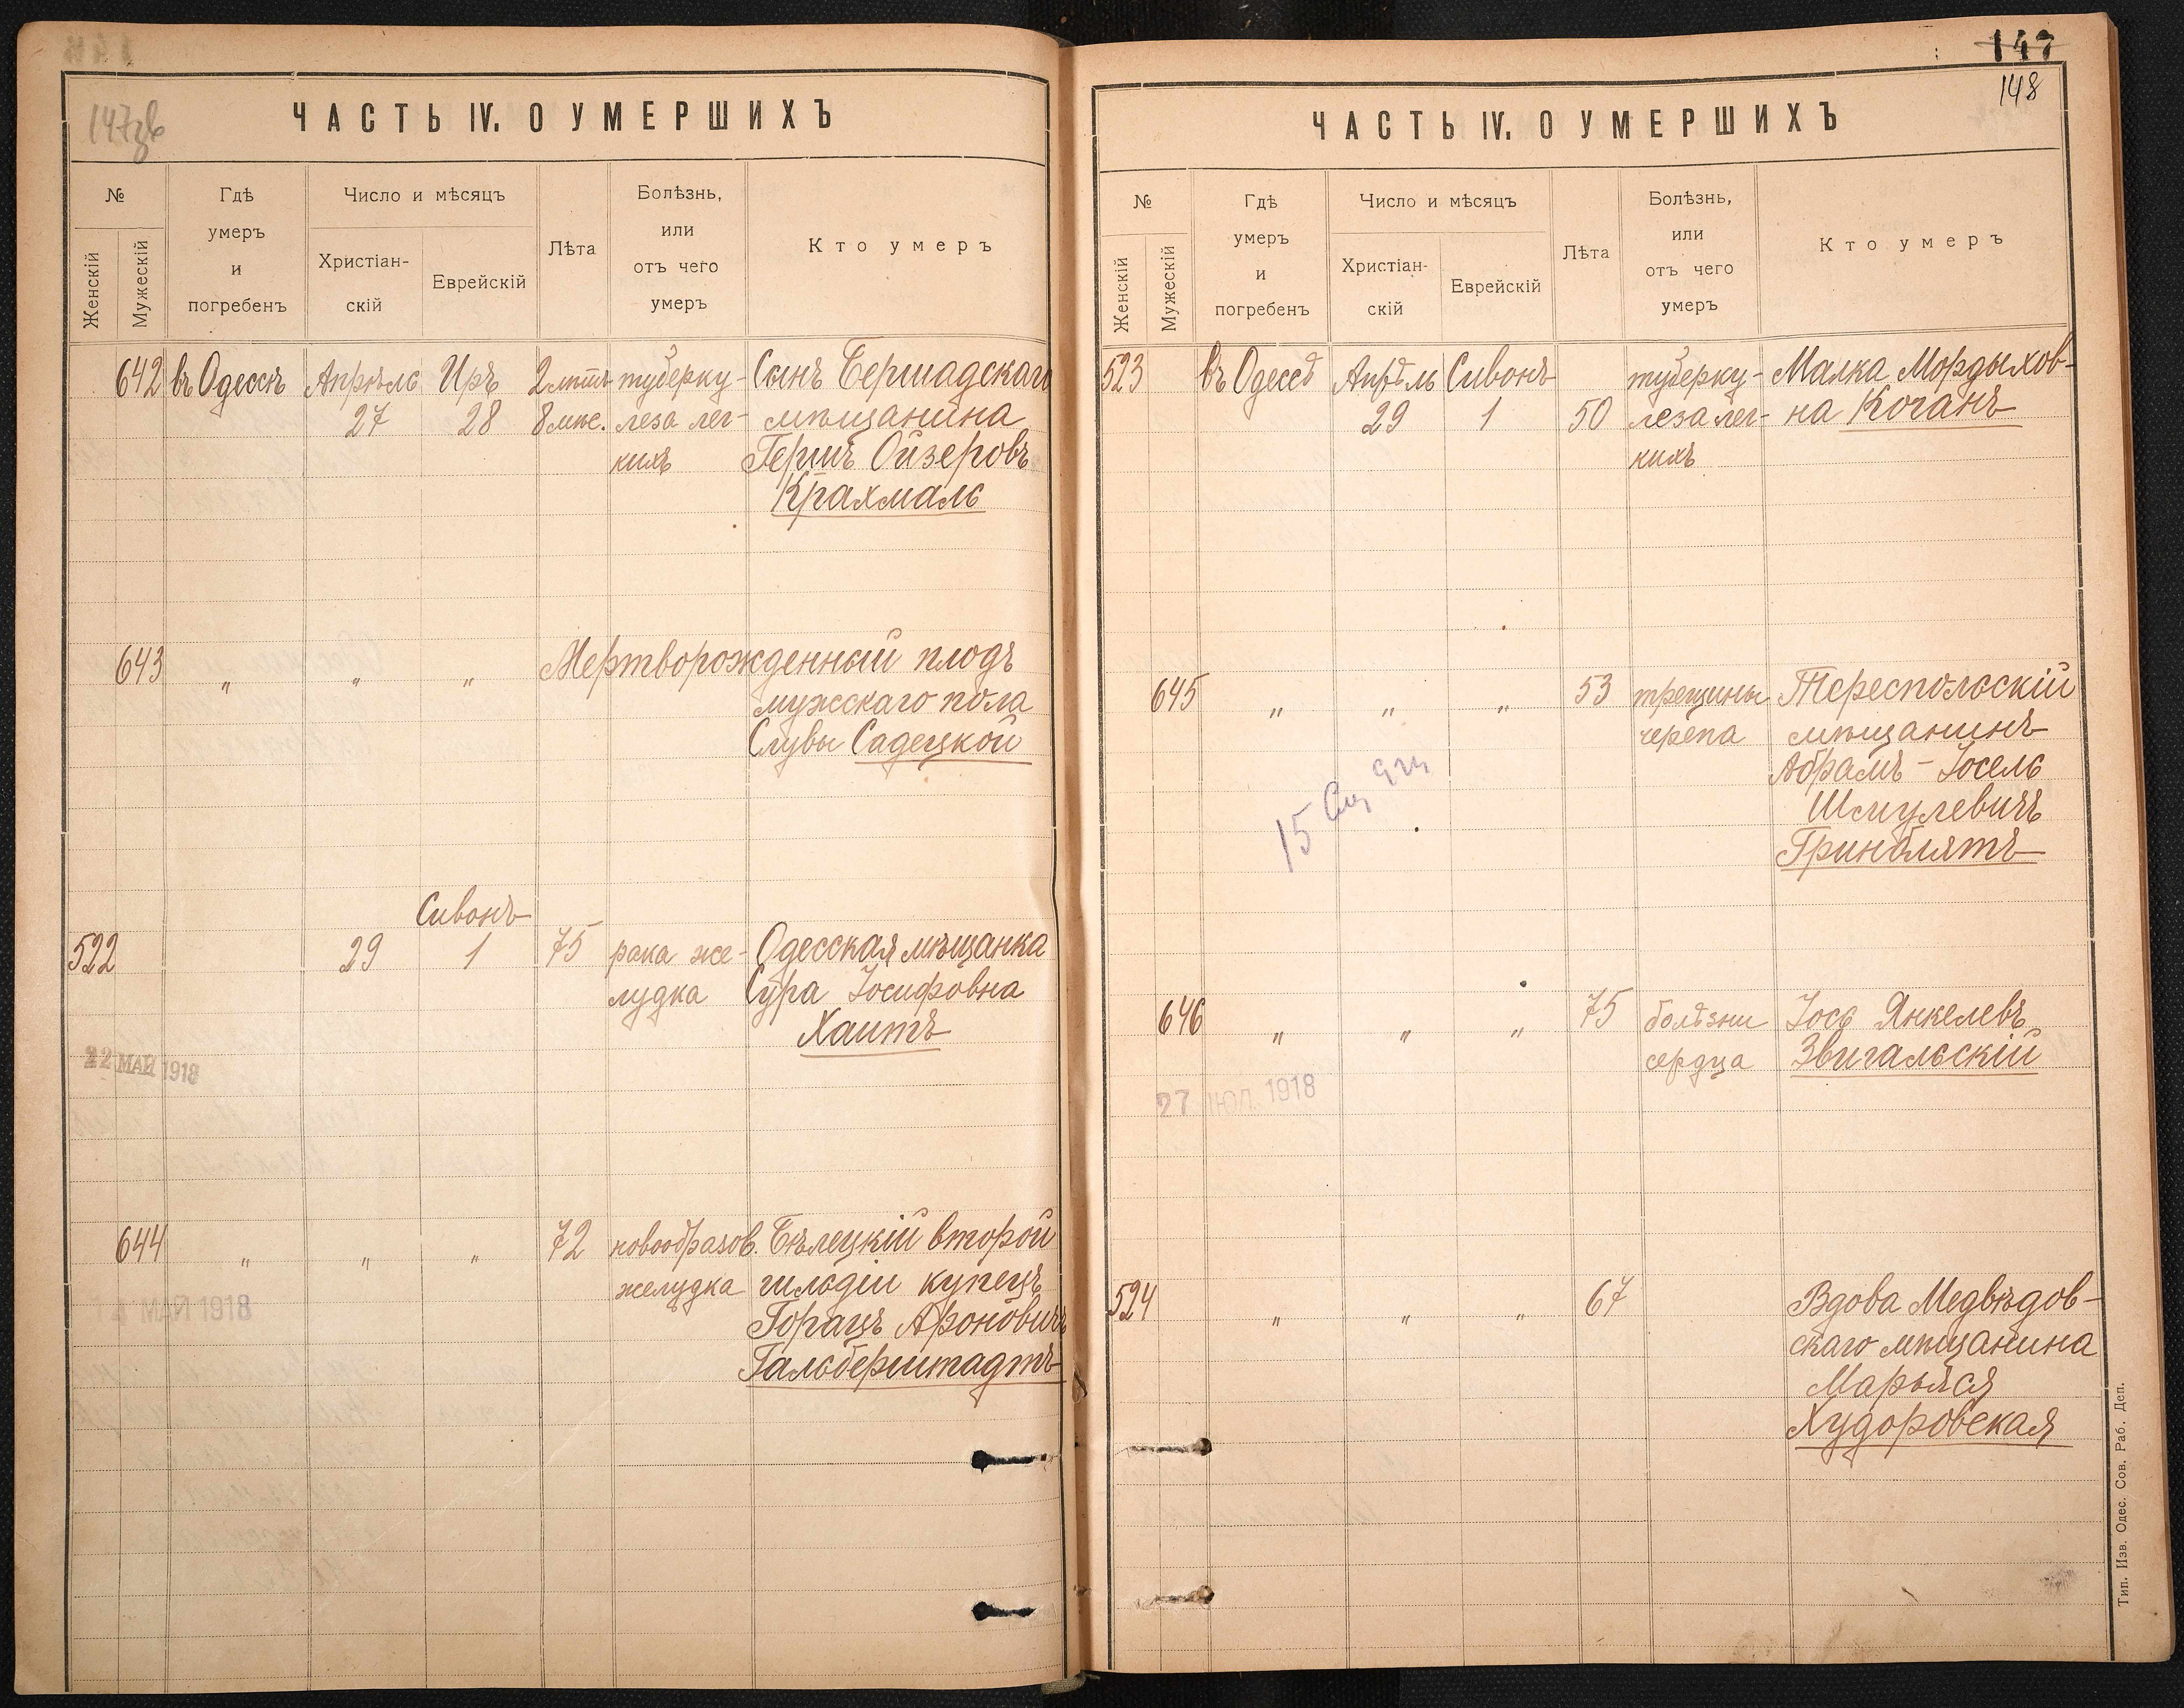 147зв
ЧАСТЬ IV. О УМЕРШИХЪ
№
Женскій
Мужескій
Гдѣ
умеръ
и
погребенъ
Число и мѣсяцъ
Христіан-
скій
Еврейскій
Лѣта
Болѣзнь,
или
отъ чего
умеръ
Кто умеръ
642 въ Одессѣ Апрѣль Иръ 2 лѣтъ туберку- Сынъ Бершадскаго
27 28 8 мѣс. леза лег- мѣщанина
кихъ Гершъ Ойзеровъ
Крахмаль
643 " " " Мертворожденный плодъ
мужскаго пола
Слувы Садецкой
Сивонъ
522 29 1 75 рака же- Одесская мѣщанка
лудка Сура Іосифовна
Хаитъ
22 МАЙ 1918
644 " " " 72 новообразов. Бѣлецкій второй
желудка гильдіи купецъ
14 МАЙ 1918
Горацъ Ароновичъ
Гальберштадтъ
147
148
ЧАСТЬ IV. О УМЕРШИХЪ
№
Женскій
Мужескій
Гдѣ
умеръ
и
погребенъ
Число и мѣсяцъ
Христіан-
скій
Еврейскій
Лѣта
Болѣзнь,
или
отъ чего
умеръ
Кто умеръ
523 въ Одессѣ Апрѣль Сивонъ туберку- Малка Мордыхов-
29 1 50 леза лег- на Коганъ
кихъ
645 " " " 53 трещины Тереспольскій
черепа мѣщанинъ
Абрамъ-Іосель
Шмулевичъ
Гринблятъ
15
646 " " " 75 болѣзни Іось Янкелевъ
сердца Звигальскій
27 ІЮЛ. 1918
524 " " " 67 Вдова Медвѣдов-
скаго мѣщанина
Марьяся
Худоровская
Тип. Изв. Одес. Сов. Раб. Деп.